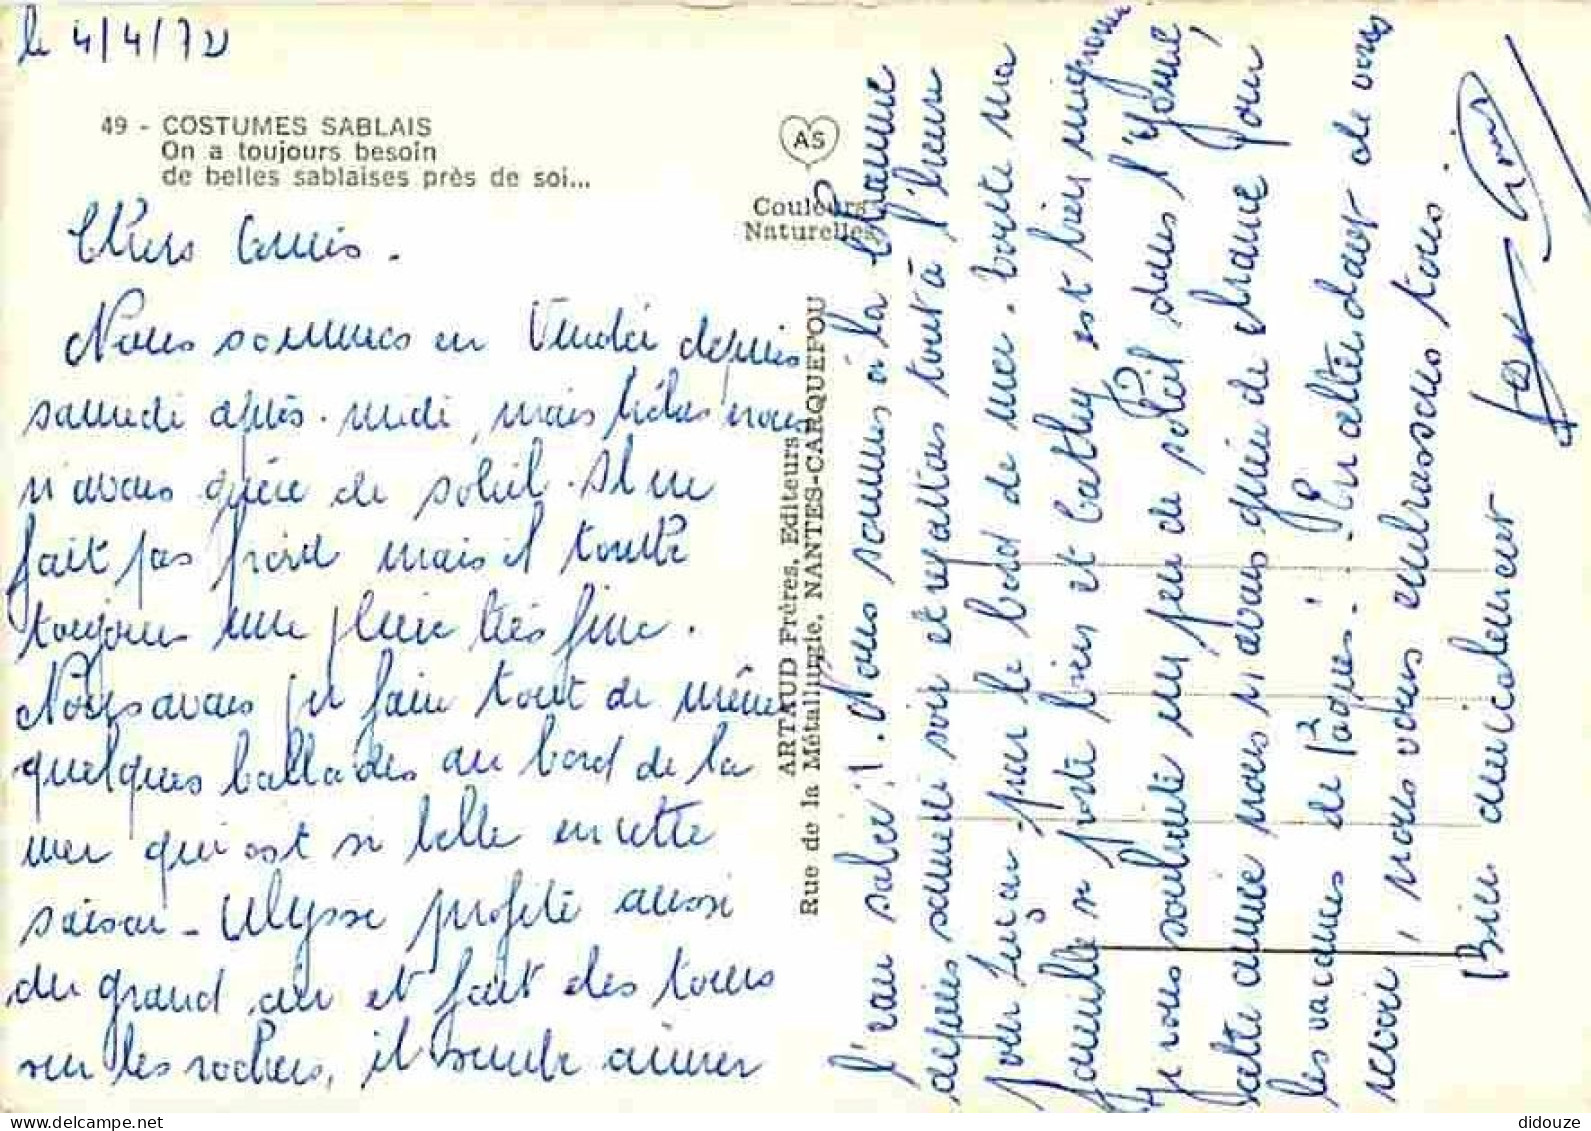 le 4/4/72
49 - COSTUMES SABLAIS
On a toujours besoin
de belles sablaises près de soi...
AS
Couleurs
Naturelles
ARTAUD Frères, Editeurs
Rue de la Métallurgie, NANTES-CARQUEFOU
Chers Amis.
Nous sommes en Vendée depuis
samedi après-midi, mais hélas nous
n'avons guère de soleil. Il ne
fait pas froid mais il tombe
toujours une pluie très fine.
Nous avons pu faire tout de même
quelques ballades au bord de la
mer qui est si belle en cette
saison - Ulysse profite aussi
du grand air et fait des tours
sur les rochers, il semble aimer
l'eau salée !!. Nous sommes à la Chaume
depuis samedi soir et repartons tout à l'heure
pour Luçon - par le bord de mer. Toute ma
famille se porte bien et Cathy est bien mignonne
Je vous souhaite un peu de soleil dans l'Yonne,
cette année nous n'avons guère de chance pour
les vacances de Pâques ! - En attendant de vous
revoir, nous vous embrassons tous.
Bien amicalement